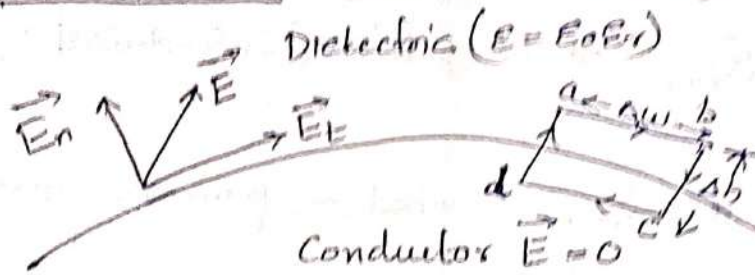 Dielectric (ε = ε₀εᵣ)
E⃗n E⃗ E⃗t a Δw b
d c Δh
Conductor E⃗ = 0